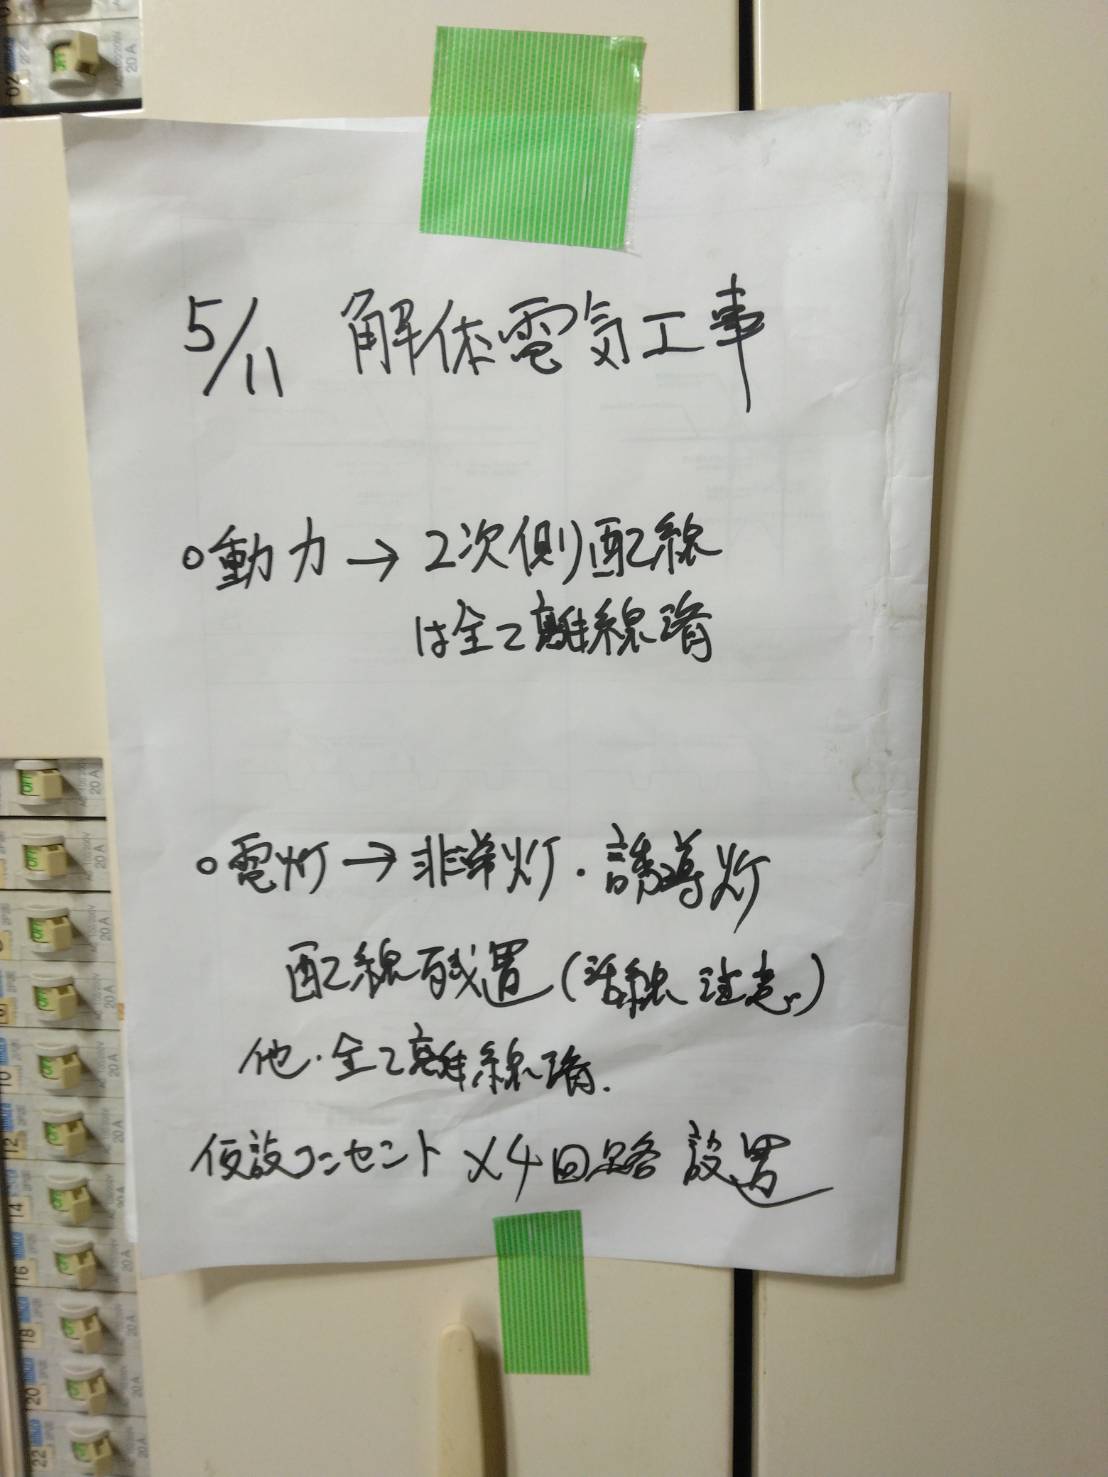 5/11 解体電気工事
○動力→2次側配線
は全て離線済
○電灯→非常灯・誘導灯
配線残置(活線注意)
他・全て離線済.
仮設コンセント×4回路 設置
02
20A
20A
20A
20A
20A
10
20A
12
20A
14
20A
16
20A
18
20A
20
20A
22
20A